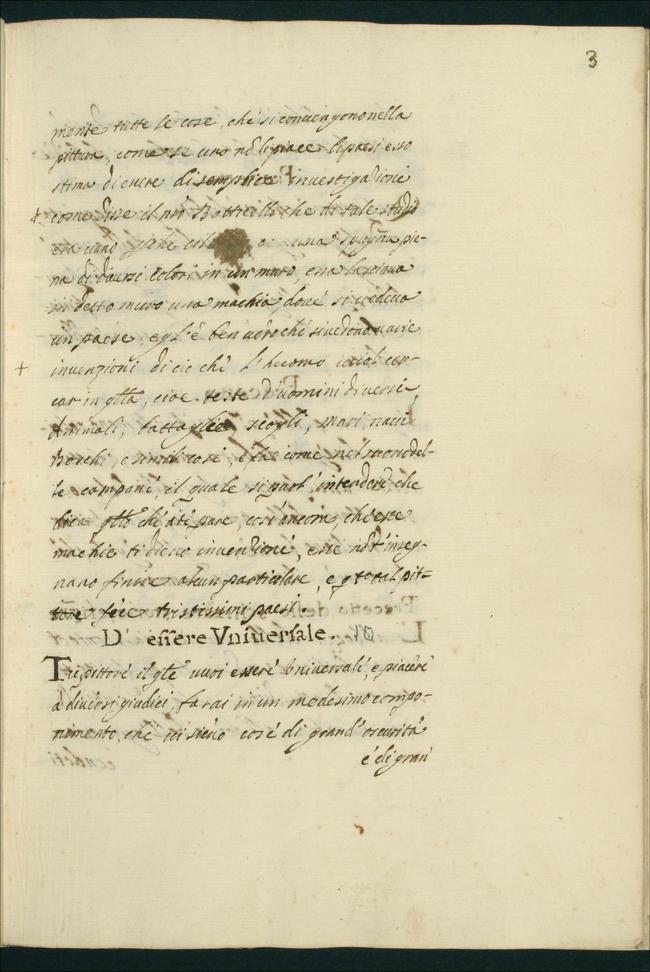 3
mente tutte le cose, che si convengono nella
pittura, come se uno nõ li piace li paesi esso
stima di essere di semplice investigazioni
come disse il nrõ Botticello che di tale studio
era vano una spugna pie-
na di diversi colori in un muro essa lasciava
in detto muro una machia, dove si vedeva
un paese egl'è ben vero che si vedono varie
invenzioni di ciò che l'huomo vuol cer-
car in qlla, cioe teste d'uomini diversi,
Animali, battaglie, scogli, mari, navi
Boschi, e simili cose, e fa come nel suono del-
le campane, il quale si puol' intendere, che
dica qllo ch'à ti pare, così ancora ch'esse
machie ti dieno invenzione, esse nõ t'inseg-
nano finire alcun particolare, e qsto tal pit-
tore fece tristissimi paesi.
D'essere Vniuersale.
Tu pittore il qle vuoi essere Universale, e piacere
à diversi giudici, farai in un medesimo compo-
nimento, che vi sieno cose di grand' oscurità
é di gran